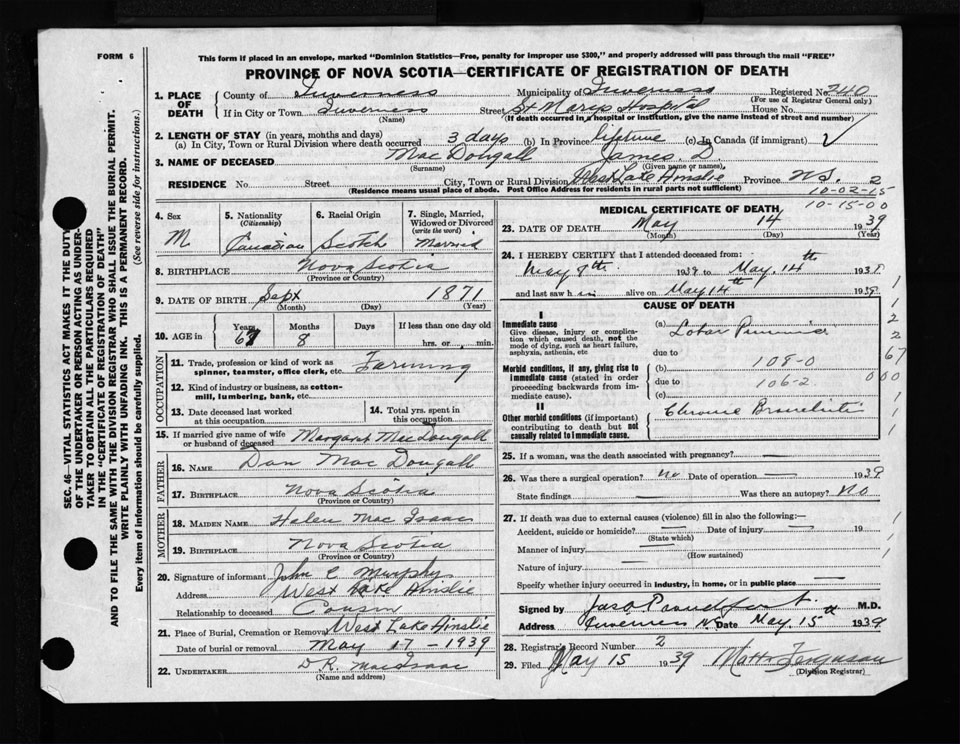 FORM 6
This form if placed in an envelope, marked "Dominion Statistics—Free, penalty for improper use $300," and properly addressed will pass through the mail "FREE"
PROVINCE OF NOVA SCOTIA—CERTIFICATE OF REGISTRATION OF DEATH
SEC. 46—VITAL STATISTICS ACT MAKES IT THE DUTY
OF THE UNDERTAKER OR PERSON ACTING AS UNDER-
TAKER TO OBTAIN ALL THE PARTICULARS REQUIRED
IN THE "CERTIFICATE OF REGISTRATION OF DEATH"
AND TO FILE THE SAME WITH THE DIVISION REGISTRAR, WHO SHALL ISSUE THE BURIAL PERMIT.
WRITE PLAINLY WITH UNFADING INK. THIS IS A PERMANENT RECORD.
Every item of information should be carefully supplied. (See reverse side for instructions.)
1. PLACE OF DEATH
County of Inverness Municipality of Inverness Registered No. 240
(For use of Registrar General only)
If in City or Town Inverness Street St Marys Hospital House No.
(Name) (If death occurred in a hospital or institution, give the name instead of street and number)
2. LENGTH OF STAY (in years, months and days)
(a) In City, Town or Rural Division where death occurred 3 days (b) In Province lifetime (c) In Canada (if immigrant)
3. NAME OF DECEASED MacDougall James D.
(Surname) (Given name or names)
RESIDENCE No. Street City, Town or Rural Division West Lake Ainslie Province N.S. 2
(Residence means usual place of abode. Post Office Address for residents in rural parts not sufficient)
10-02-15
10-15-00
4. Sex
M
5. Nationality
(Citizenship)
Canadian
6. Racial Origin
Scotch
7. Single, Married, Widowed or Divorced
(write the word)
Married
8. BIRTHPLACE Nova Scotia
(Province or Country)
9. DATE OF BIRTH Sept 1871
(Month) (Day) (Year)
10. AGE in Years Months Days If less than one day old
67 8 hrs. or, min.
OCCUPATION
11. Trade, profession or kind of work as
spinner, teamster, office clerk, etc. Farming
12. Kind of industry or business, as cotton-
mill, lumbering, bank, etc.
13. Date deceased last worked
at this occupation
14. Total yrs. spent in
this occupation
15. If married give name of wife
or husband of deceased Margaret MacDougall
FATHER
16. NAME Dan MacDougall
17. BIRTHPLACE Nova Scotia
(Province or Country)
MOTHER
18. MAIDEN NAME Helen MacIsaac
19. BIRTHPLACE Nova Scotia
(Province or Country)
20. Signature of informant John C Murphy
Address West Lake Ainslie
Relationship to deceased Cousin
21. Place of Burial, Cremation or Removal West Lake Ainslie
Date of burial or removal May 17 - 1939
22. UNDERTAKER D R. MacIsaac
(Name and address)
MEDICAL CERTIFICATE OF DEATH
23. DATE OF DEATH May 14 1939
(Month) (Day) (Year)
24. I HEREBY CERTIFY that I attended deceased from:
May 9th. 1939 to May, 14th 1939
and last saw him alive on May, 14th 1939
CAUSE OF DEATH
I
Immediate cause
Give disease, injury or complica-
tion which caused death, not the
mode of dying, such as heart failure,
asphyxia, asthenia, etc
(a) Lobar Pneumonia
due to
Morbid conditions, if any, giving rise to
immediate cause (stated in order
proceeding backwards from im-
mediate cause).
(b) 108-0
due to 106-2
(c)
II
Other morbid conditions (if important)
contributing to death but not
causally related to immediate cause.
Chronic Bronchitis
1
1
2
2
67
000
1
1
1
25. If a woman, was the death associated with pregnancy?
26. Was there a surgical operation? No Date of operation 1939
State findings Was there an autopsy? No
27. If death was due to external causes (violence) fill in also the following:
Accident, suicide or homicide? Date of injury 19
(State which)
Manner of injury
(How sustained)
Nature of injury
Specify whether injury occurred in industry, in home, or in public place
Signed by Jas. Proudfoot. M.D.
Address Inverness N.S. Date May. 15th 1939
28. Registrar's Record Number 2
29. Filed May 15 1939 Ferguson
(Division Registrar)